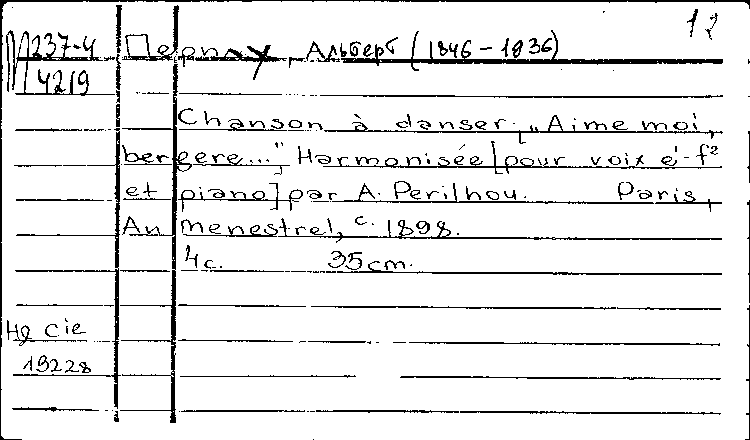 12
М237-4 Перилу, Альберт (1846-1936)
4219
Chanson à danser, [„Aime moi,
bergere..."], Harmonisée [pour voix e'-f²
et piano] par A. Perilhou. Paris,
Au menestrel, c. 1898.
4c. 35cm.
Hg Cie
19228